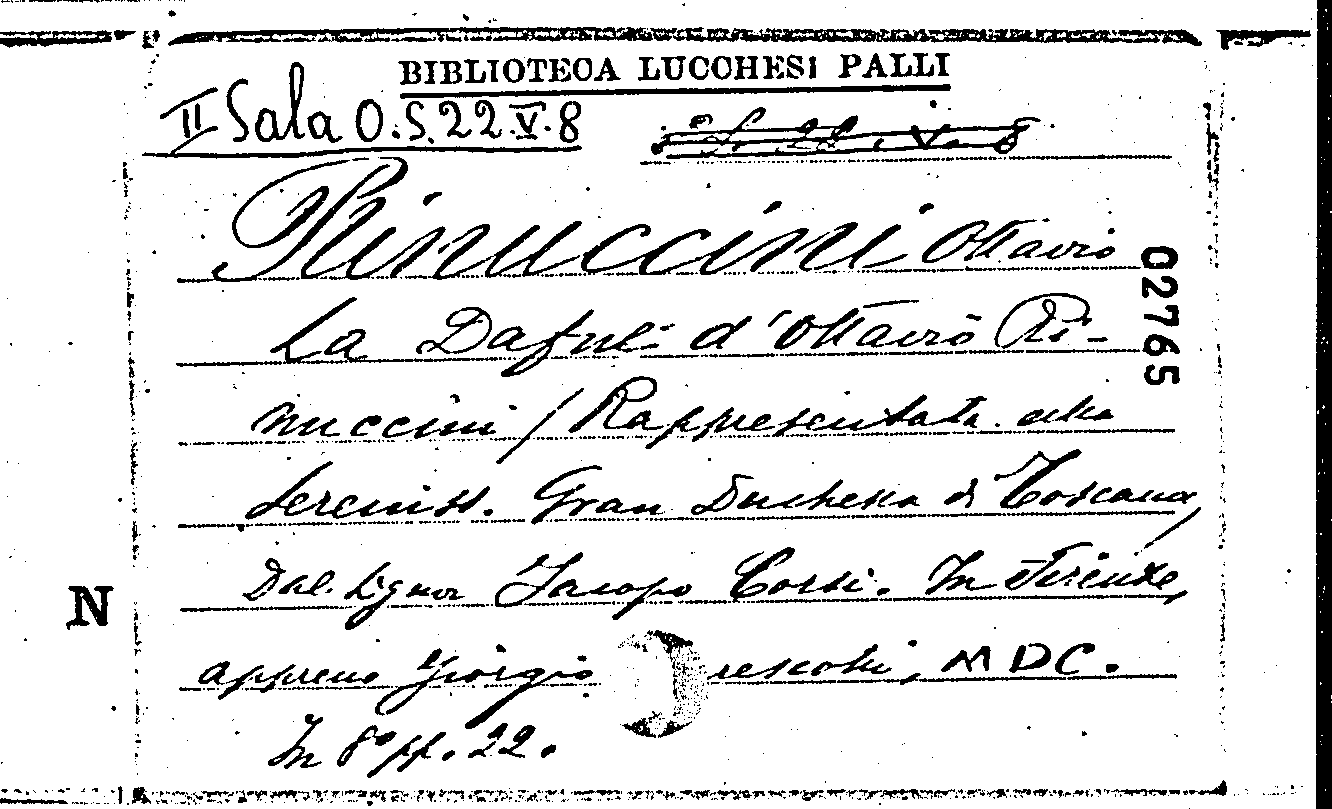 BIBLIOTECA LUCCHESI PALLI
II Sala O.S.22.V.8
Rinuccini Ottavio
La Dafne d'Ottavio Ri-
nuccini / Rappresentata alla
Sereniss. Gran Duchessa di Toscana,
Dal Signor Jacopo Corsi. In Firenze,
appresso Giorgio rescotti, MDC.
In 8° pp. 22.
02765
N